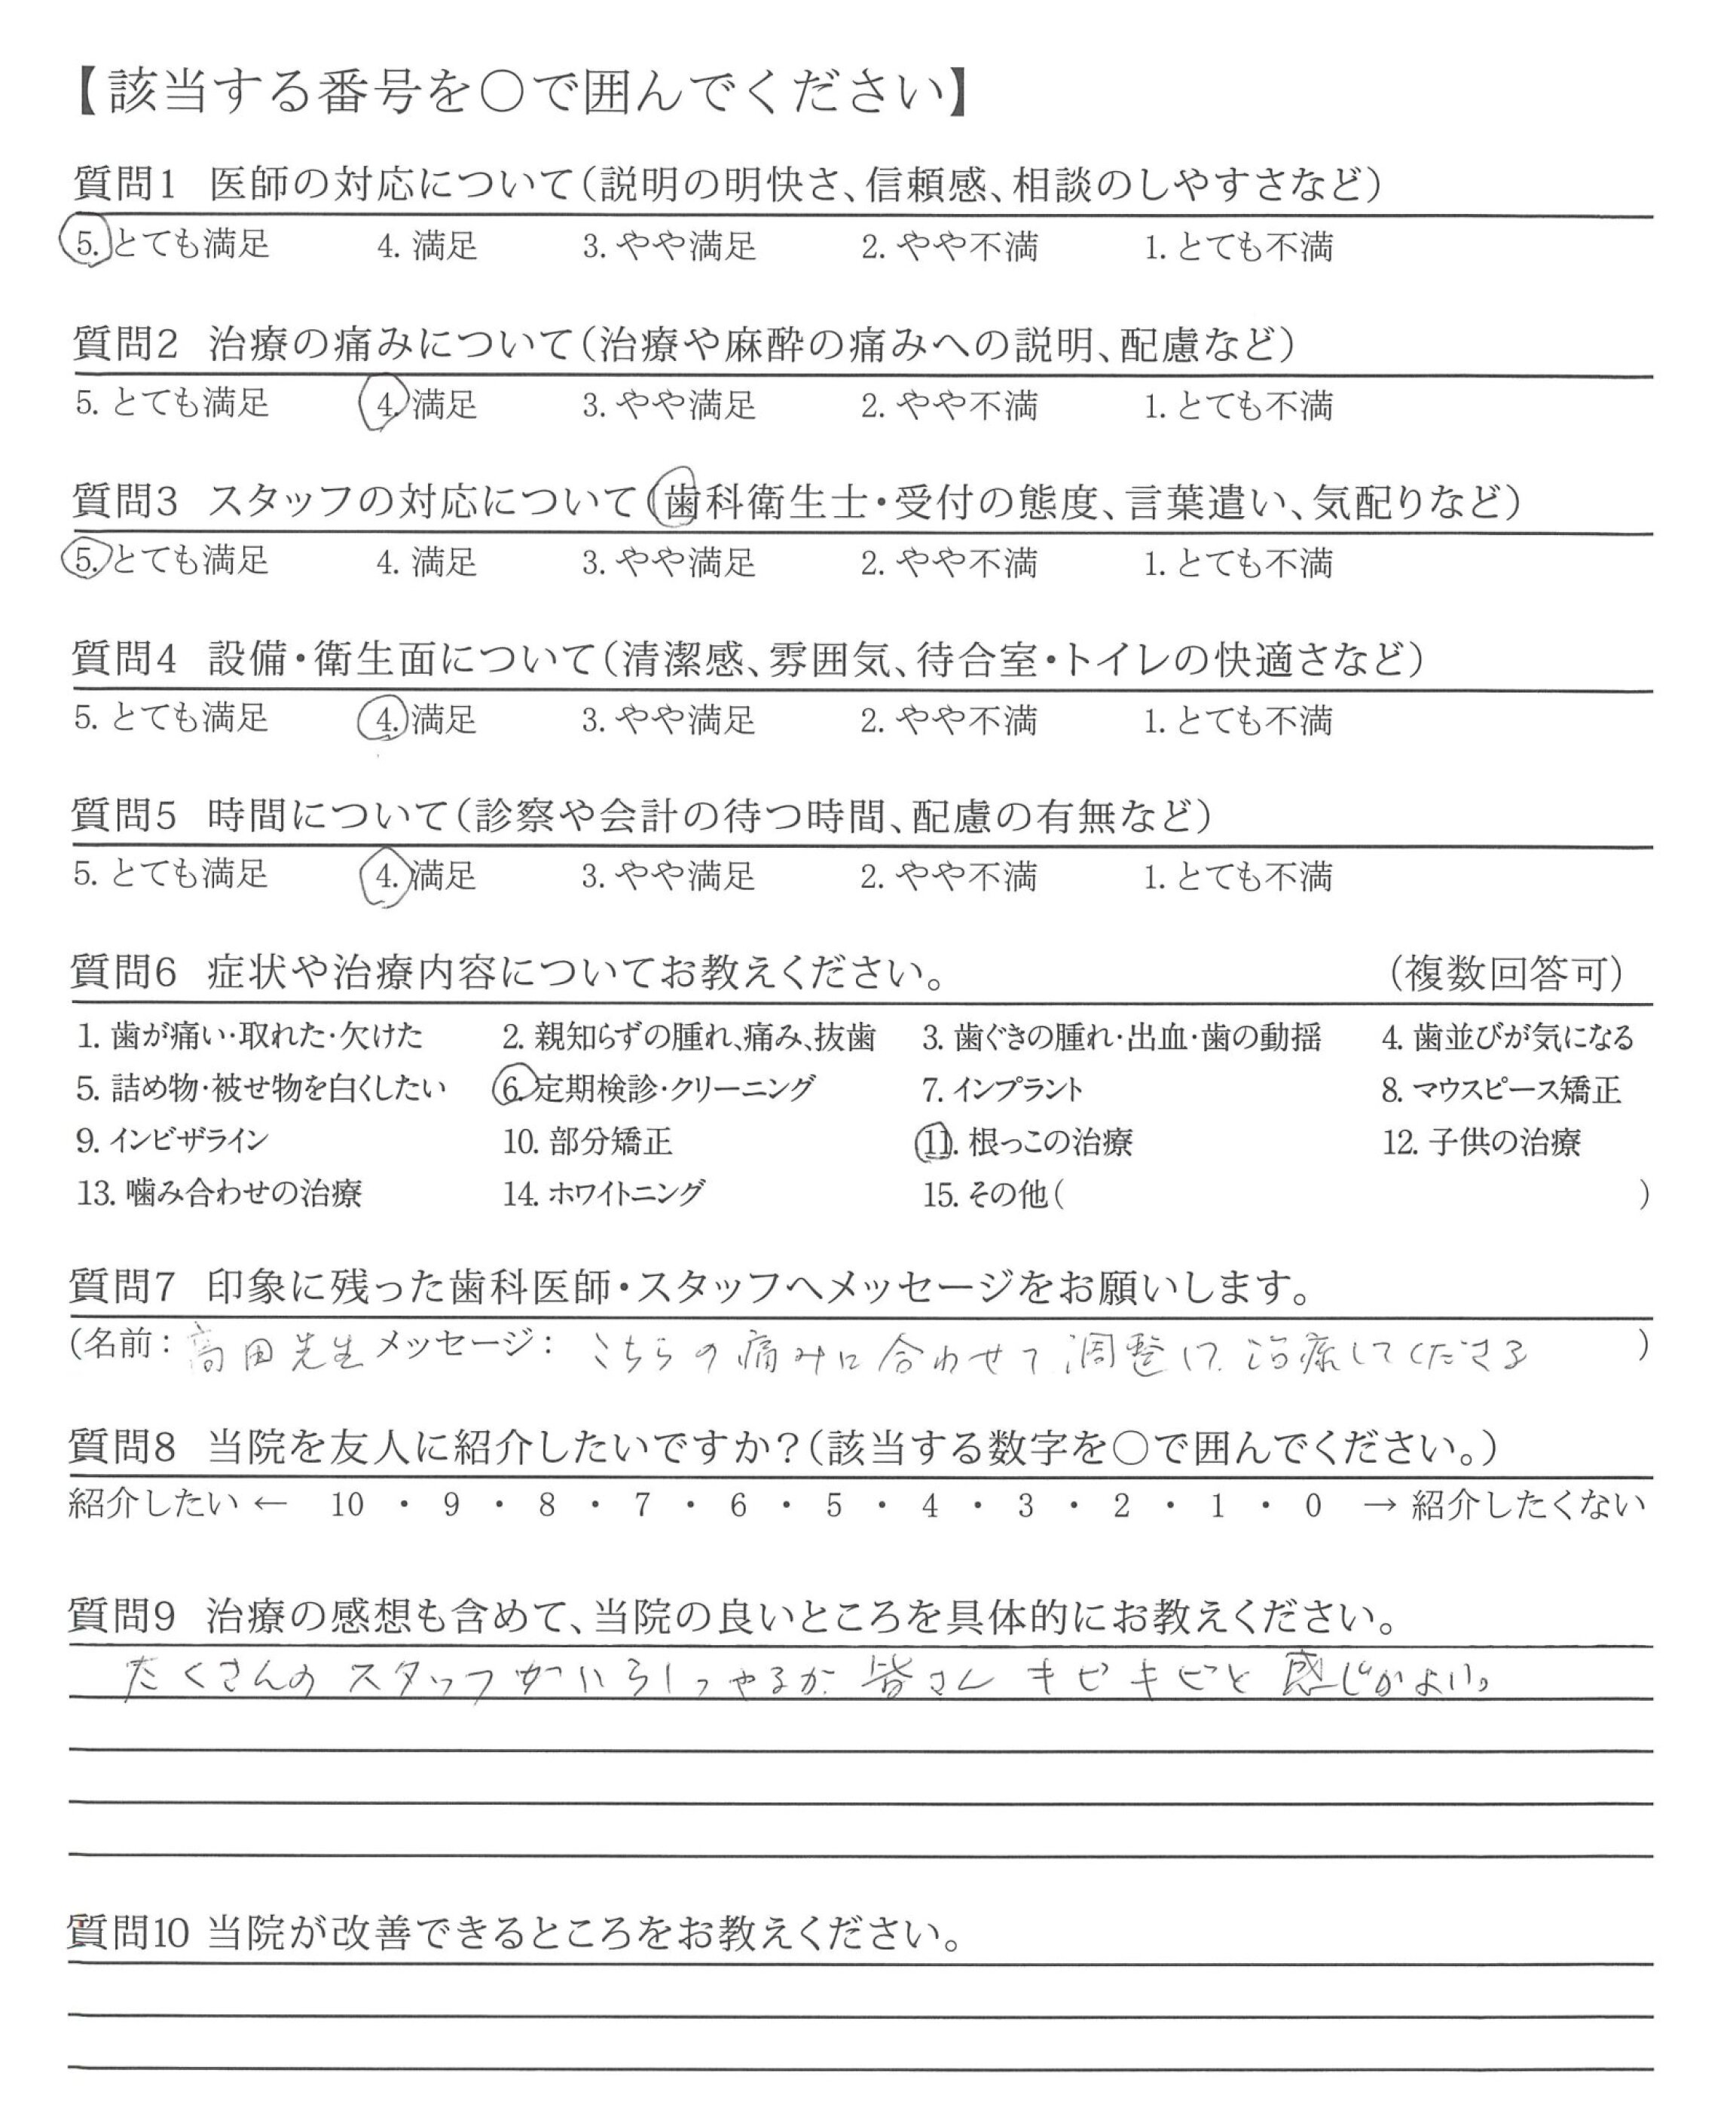 【該当する番号を○で囲んでください】
質問1 医師の対応について(説明の明快さ、信頼感、相談のしやすさなど)
5. とても満足 4. 満足 3. やや満足 2. やや不満 1. とても不満
質問2 治療の痛みについて(治療や麻酔の痛みへの説明、配慮など)
5. とても満足 4. 満足 3. やや満足 2. やや不満 1. とても不満
質問3 スタッフの対応について(歯科衛生士・受付の態度、言葉遣い、気配りなど)
5. とても満足 4. 満足 3. やや満足 2. やや不満 1. とても不満
質問4 設備・衛生面について(清潔感、雰囲気、待合室・トイレの快適さなど)
5. とても満足 4. 満足 3. やや満足 2. やや不満 1. とても不満
質問5 時間について(診察や会計の待つ時間、配慮の有無など)
5. とても満足 4. 満足 3. やや満足 2. やや不満 1. とても不満
質問6 症状や治療内容についてお教えください。 (複数回答可)
1. 歯が痛い・取れた・欠けた 2. 親知らずの腫れ、痛み、抜歯 3. 歯ぐきの腫れ・出血・歯の動揺 4. 歯並びが気になる
5. 詰め物・被せ物を白くしたい 6. 定期検診・クリーニング 7. インプラント 8. マウスピース矯正
9. インビザライン 10. 部分矯正 11. 根っこの治療 12. 子供の治療
13. 噛み合わせの治療 14. ホワイトニング 15. その他( )
質問7 印象に残った歯科医師・スタッフへメッセージをお願いします。
(名前：高田先生 メッセージ：こちらの痛みに合わせて調整して治療してくださる )
質問8 当院を友人に紹介したいですか？(該当する数字を○で囲んでください。)
紹介したい ← 10 ・ 9 ・ 8 ・ 7 ・ 6 ・ 5 ・ 4 ・ 3 ・ 2 ・ 1 ・ 0 → 紹介したくない
質問9 治療の感想も含めて、当院の良いところを具体的にお教えください。
たくさんのスタッフがいらしっゃるが皆さんキビキビと感じがよい。
質問10 当院が改善できるところをお教えください。